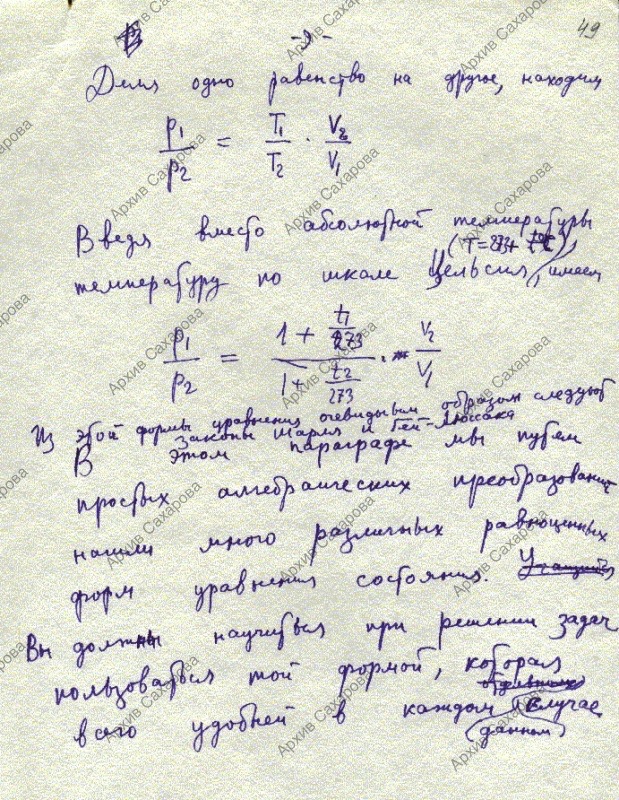 -9-
49
Деля одно равенство на другое, находим
p₁/p₂ = T₁/T₂ · V₂/V₁
Введя вместо абсолютной температуры
(T = 273 + t°C)
температуру по шкале Цельсия, имеем
p₁/p₂ = (1 + t₁/273)/(1 + t₂/273) · V₂/V₁
Из этой формы уравнения очевидным образом следуют
законы Шарля и Гей-Люссака
В этом параграфе мы путем
простых алгебраических преобразований
нашли много различных равноценных
форм уравнения состояния. Учащийся
Вы должны научиться при решении задач
пользоваться той формой, которая
всего удобней в каждом случае
(данном)
Архив Сахарова